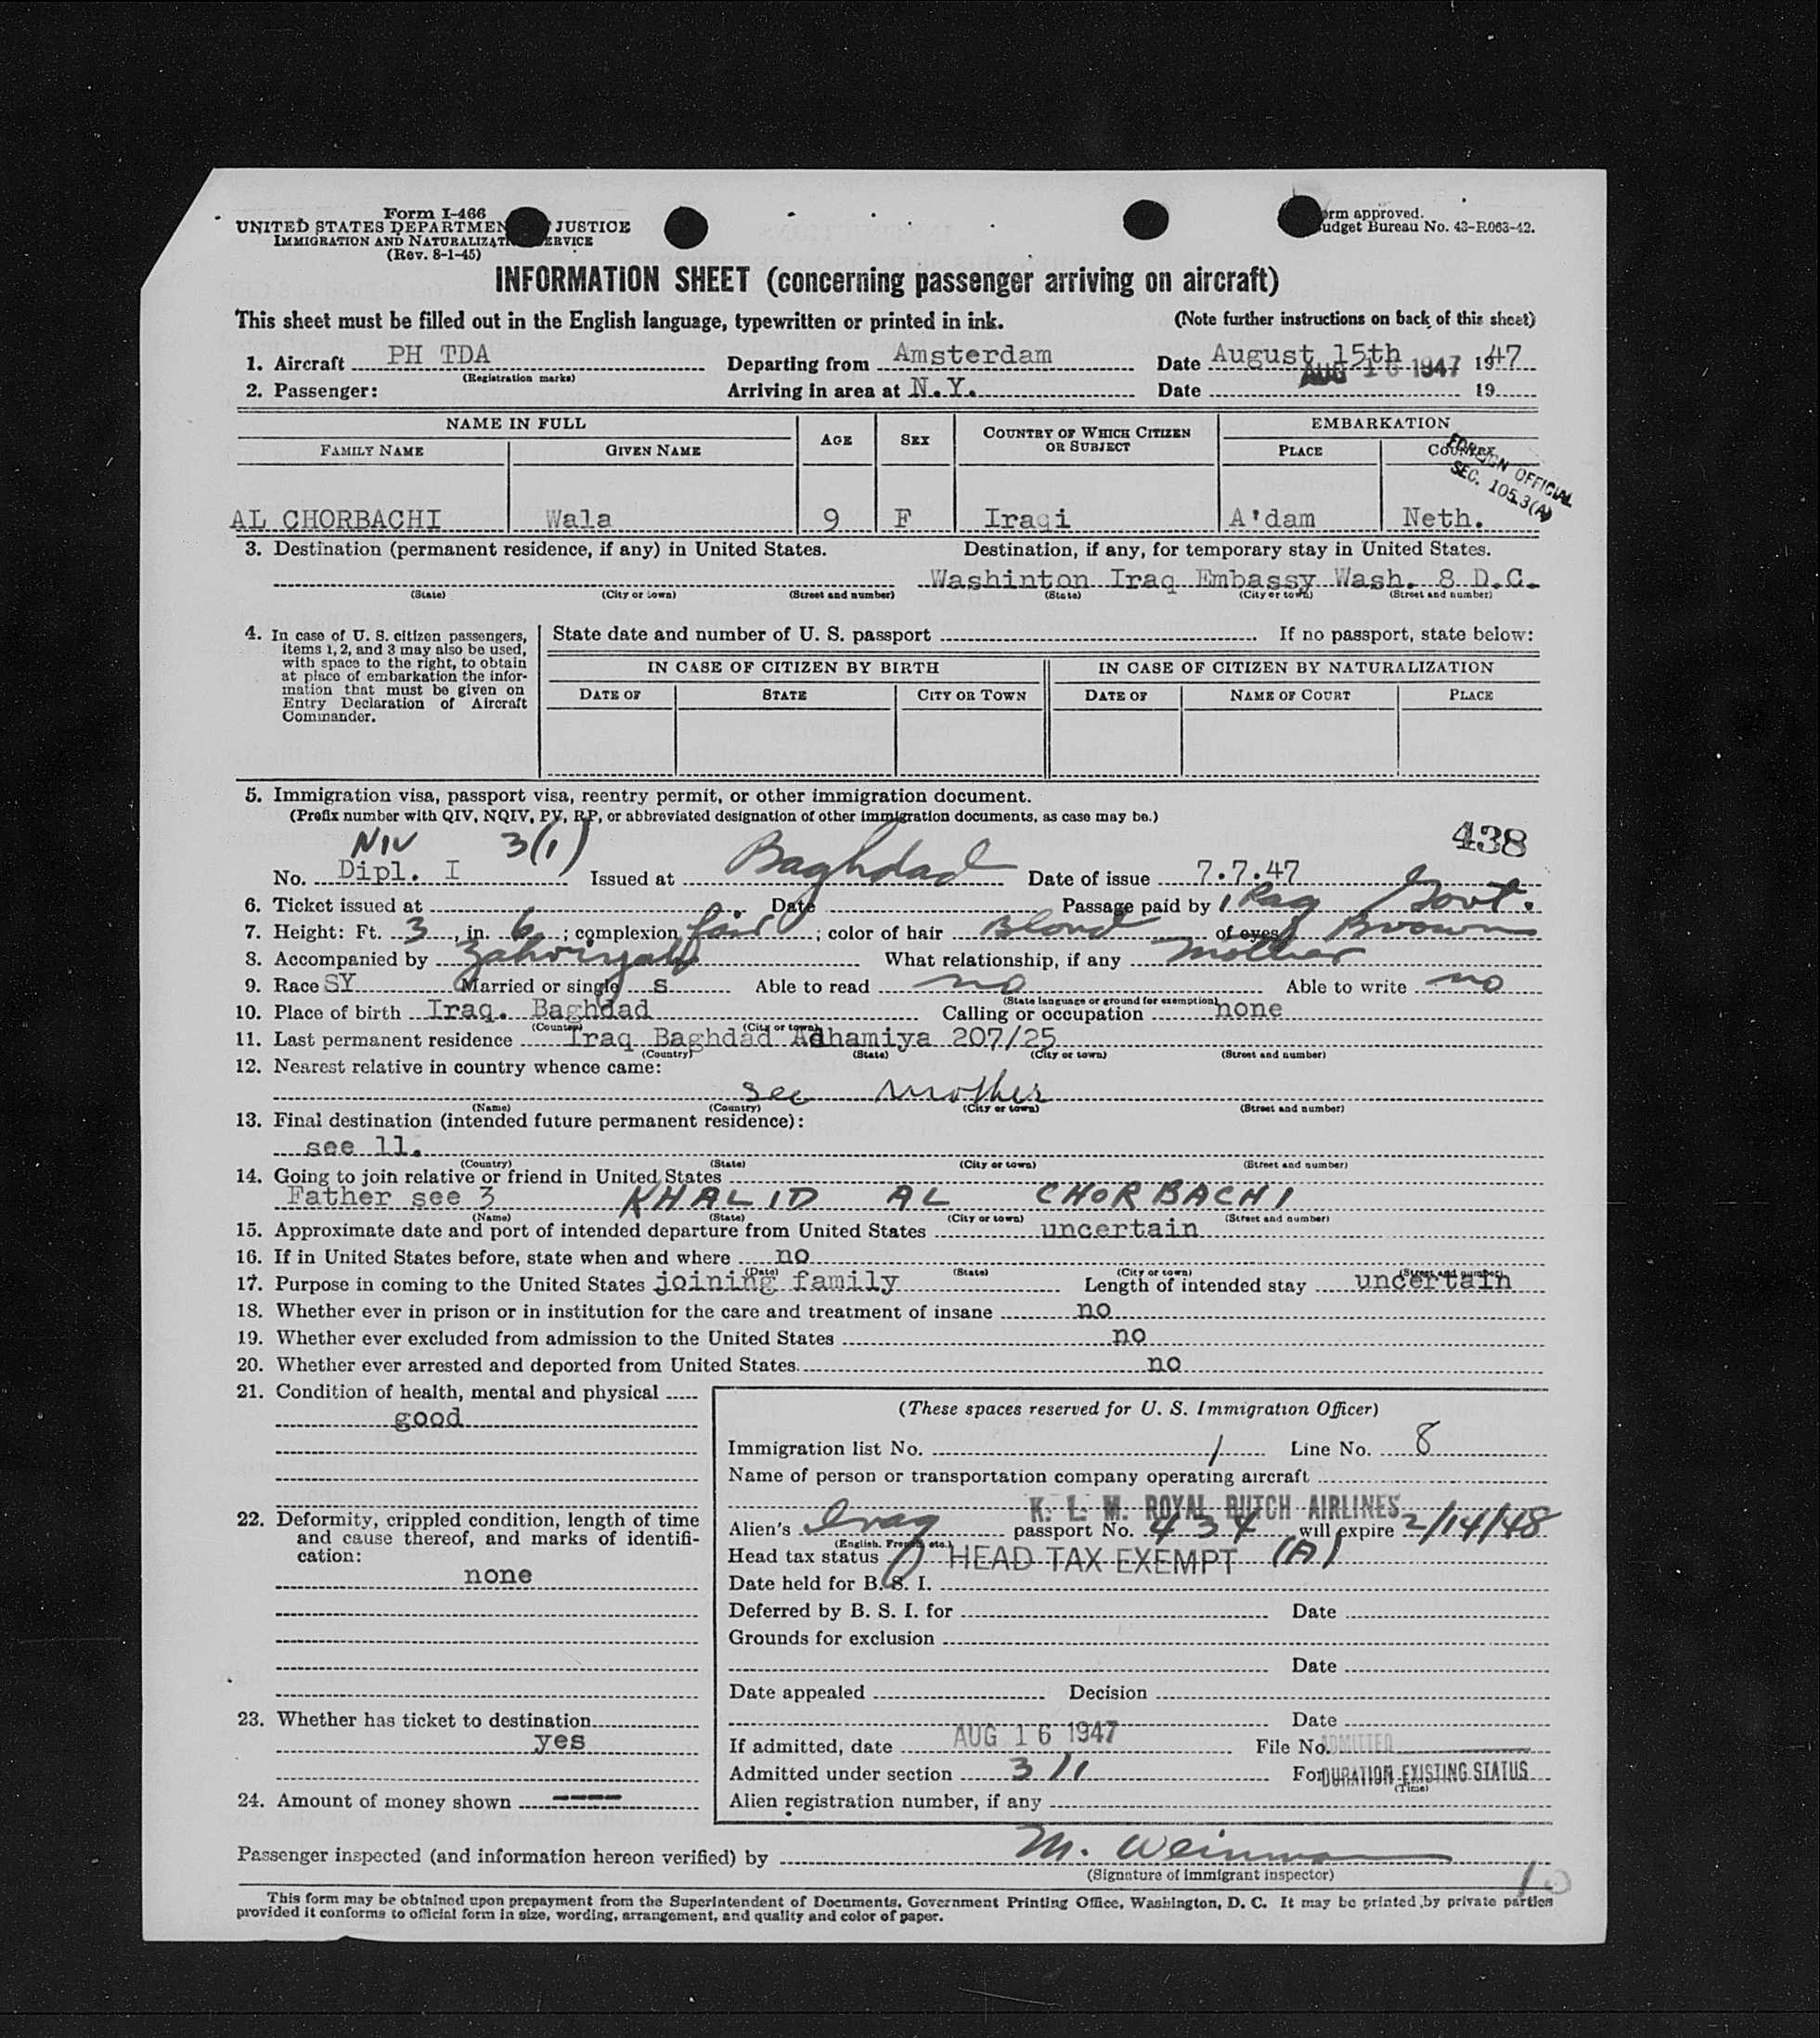 Form I-466
UNITED STATES DEPARTMEN JUSTICE
IMMIGRATION AND NATURALIZAT ERVICE
(Rev. 8-1-45)
orm approved.
udget Bureau No. 43-R063-42.
INFORMATION SHEET (concerning passenger arriving on aircraft)
This sheet must be filled out in the English language, typewritten or printed in ink. (Note further instructions on back of this sheet)
1. Aircraft PH TDA Departing from Amsterdam Date August 15th 1947
(Registration marks) AUG 16 1947
2. Passenger: Arriving in area at N.Y. Date 19
NAME IN FULL AGE SEX COUNTRY OF WHICH CITIZEN OR SUBJECT EMBARKATION
FAMILY NAME GIVEN NAME PLACE COUNTRY
FOREIGN OFFICIAL
SEC. 105.3(A)
AL CHORBACHI Wala 9 F Iraqi A'dam Neth.
3. Destination (permanent residence, if any) in United States. Destination, if any, for temporary stay in United States.
Washinton Iraq Embassy Wash. 8 D.C.
(State) (City or town) (Street and number) (State) (City or town) (Street and number)
4. In case of U. S. citizen passengers,
items 1, 2, and 3 may also be used,
with space to the right, to obtain
at place of embarkation the infor-
mation that must be given on
Entry Declaration of Aircraft
Commander.
State date and number of U. S. passport If no passport, state below:
IN CASE OF CITIZEN BY BIRTH IN CASE OF CITIZEN BY NATURALIZATION
DATE OF STATE CITY OR TOWN DATE OF NAME OF COURT PLACE
5. Immigration visa, passport visa, reentry permit, or other immigration document.
(Prefix number with QIV, NQIV, PV, RP, or abbreviated designation of other immigration documents, as case may be.)
NIV 3(1) 438
No. Dipl. I Issued at Baghdad Date of issue 7.7.47
6. Ticket issued at Date Passage paid by Iraq Govt.
7. Height: Ft. 3, in. 6; complexion fair; color of hair Blond of eyes Brown
8. Accompanied by What relationship, if any mother
9. Race SY Married or single s Able to read no Able to write no
(State language or ground for exemption)
10. Place of birth Iraq. Baghdad Calling or occupation none
(Country) (City or town)
11. Last permanent residence Iraq Baghdad Adhamiya 207/25
(Country) (State) (City or town) (Street and number)
12. Nearest relative in country whence came:
see mother
(Name) (Country) (City or town) (Street and number)
13. Final destination (intended future permanent residence):
see 11.
(Country) (State) (City or town) (Street and number)
14. Going to join relative or friend in United States
Father see 3 KHALID AL CHORBACHI
(Name) (State) (City or town) (Street and number)
15. Approximate date and port of intended departure from United States uncertain
16. If in United States before, state when and where no
(Date) (State) (City or town) (Street and number)
17. Purpose in coming to the United States joining family Length of intended stay uncertain
18. Whether ever in prison or in institution for the care and treatment of insane no
19. Whether ever excluded from admission to the United States no
20. Whether ever arrested and deported from United States. no
21. Condition of health, mental and physical
good
22. Deformity, crippled condition, length of time
and cause thereof, and marks of identifi-
cation:
none
23. Whether has ticket to destination
yes
24. Amount of money shown ----
(These spaces reserved for U. S. Immigration Officer)
Immigration list No. 1 Line No. 8
Name of person or transportation company operating aircraft
K. L. M. ROYAL DUTCH AIRLINES
Alien's Iraq passport No. 434 will expire 2/14/48
(English, French, etc.)
Head tax status HEAD TAX EXEMPT (A)
Date held for B. S. I.
Deferred by B. S. I. for Date
Grounds for exclusion
Date
Date appealed Decision
Date
If admitted, date AUG 16 1947 File No. ADMITTED
Admitted under section 3/1 For DURATION EXISTING STATUS
(Time)
Alien registration number, if any
Passenger inspected (and information hereon verified) by M. Weinman
(Signature of immigrant inspector)
10
This form may be obtained upon prepayment from the Superintendent of Documents, Government Printing Office, Washington, D. C. It may be printed by private parties
provided it conforms to official form in size, wording, arrangement, and quality and color of paper.